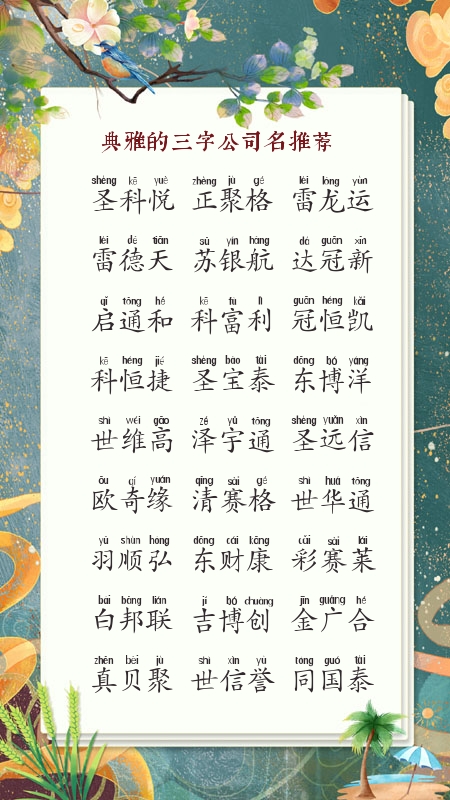 典雅的三字公司名推荐
shèng kē yuè zhèng jù gé léi lóng yùn
圣科悦 正聚格 雷龙运
léi dé tiān sū yín háng dá guān xīn
雷德天 苏银航 达冠新
qǐ tōng hé kē fù lì guān héng kǎi
启通和 科富利 冠恒凯
kē héng jié shèng bǎo tài dōng bó yáng
科恒捷 圣宝泰 东博洋
shì wéi gāo zé yǔ tōng shèng yuǎn xìn
世维高 泽宇通 圣远信
ōu qí yuán qīng sài gé shì huá tōng
欧奇缘 清赛格 世华通
yǔ shùn hóng dōng cái kāng cǎi sài lái
羽顺弘 东财康 彩赛莱
bái bāng lián jí bó chuàng jīn guǎng hé
白邦联 吉博创 金广合
zhēn bèi jù shì xìn yù tóng guó tài
真贝聚 世信誉 同国泰